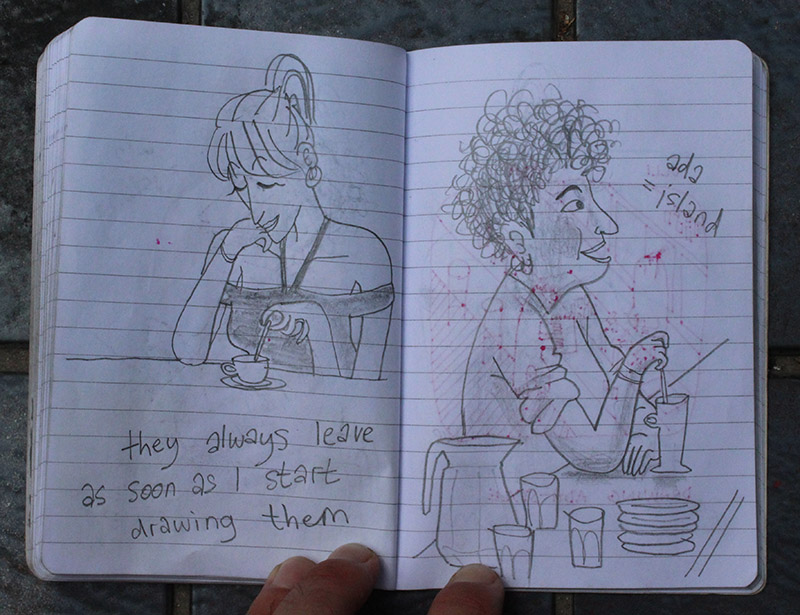 they always leave
as soon as I start
drawing them
ada
=
island